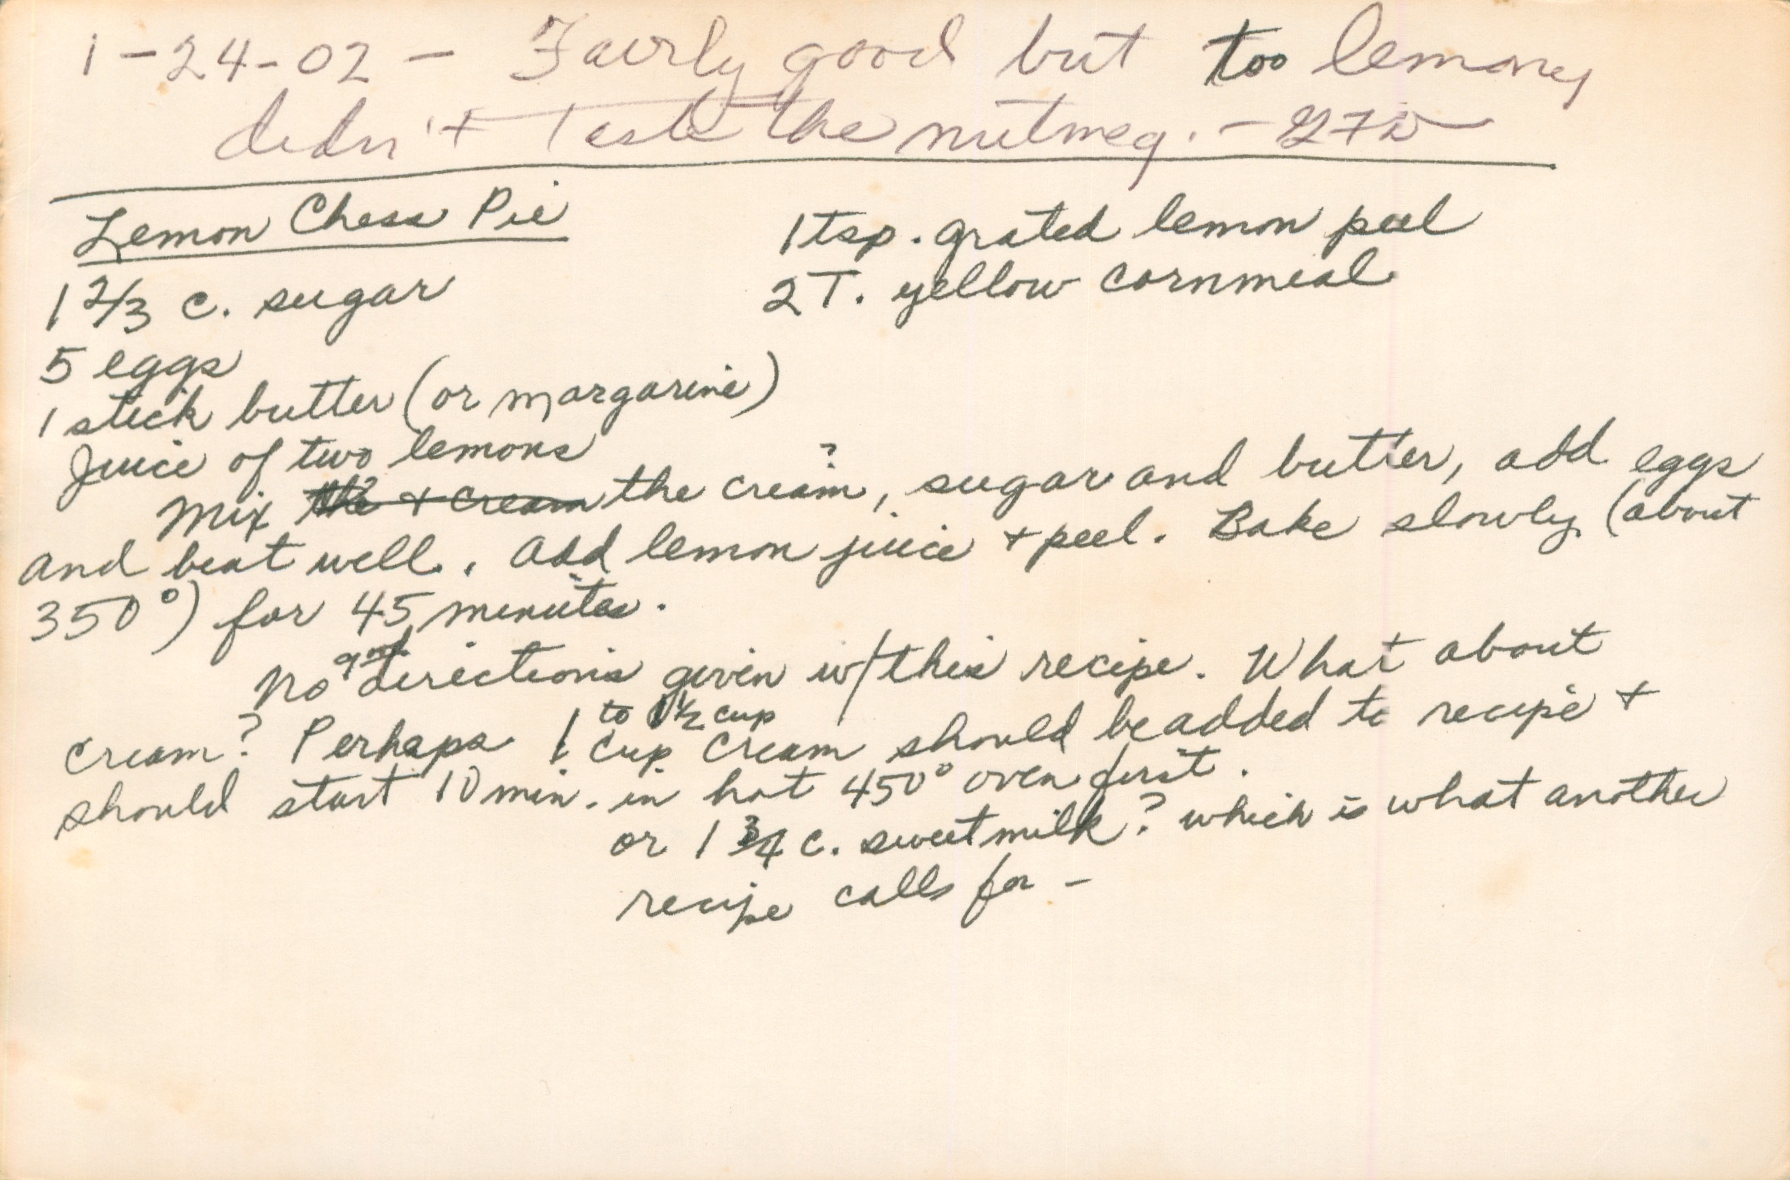 1-24-02 - Fairly good but too lemony
didn't taste the nutmeg. -
Lemon Chess Pie
1 2/3 c. sugar
5 eggs
1 stick butter (or margarine)
Juice of two lemons
1 tsp. grated lemon peel
2 T. yellow cornmeal
Mix the + cream the cream?, sugar and butter, add eggs
and beat well. Add lemon juice + peel. Bake slowly (about
350°) for 45 minutes.
No good directions given w/this recipe. What about
cream? Perhaps 1 cup to 1 1/2 cup cream should be added to recipe +
should start 10 min. in hot 450° oven first.
or 1 3/4 c. sweet milk? which is what another
recipe calls for -